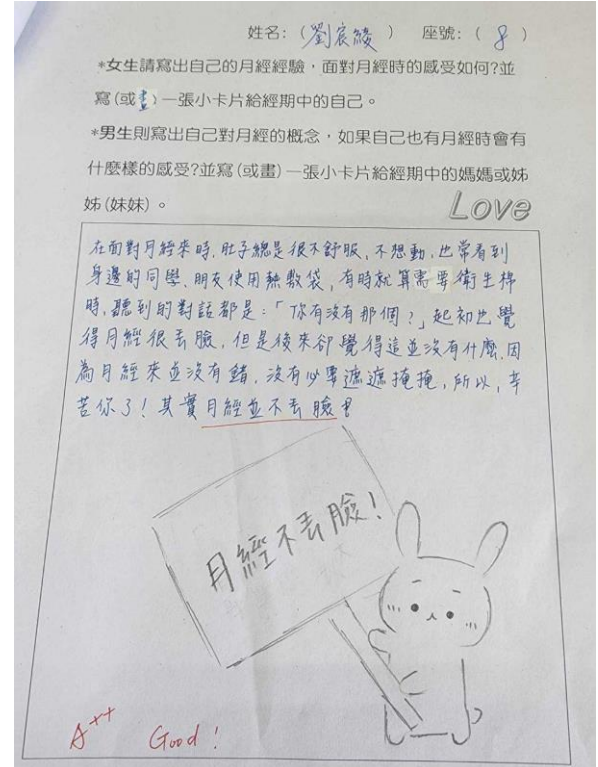 姓名：（劉宸綾） 座號：（8）
*女生請寫出自己的月經經驗，面對月經時的感受如何?並
寫(或畫)一張小卡片給經期中的自己。
*男生則寫出自己對月經的概念，如果自己也有月經時會有
什麼樣的感受?並寫(或畫)一張小卡片給經期中的媽媽或姊
姊(妹妹)。
Love
在面對月經來時，肚子總是很不舒服，不想動，也常看到
身邊的同學、朋友使用熱敷袋，有時就算需要衛生棉
時，聽到的對話都是：「你有沒有那個？」起初也覺
得月經很丟臉，但是後來卻覺得這並沒有什麼，因
為月經來並沒有錯，沒有必要遮遮掩掩，所以，辛
苦你了！其實月經並不丟臉！
月經不丟臉！
A++ Good！